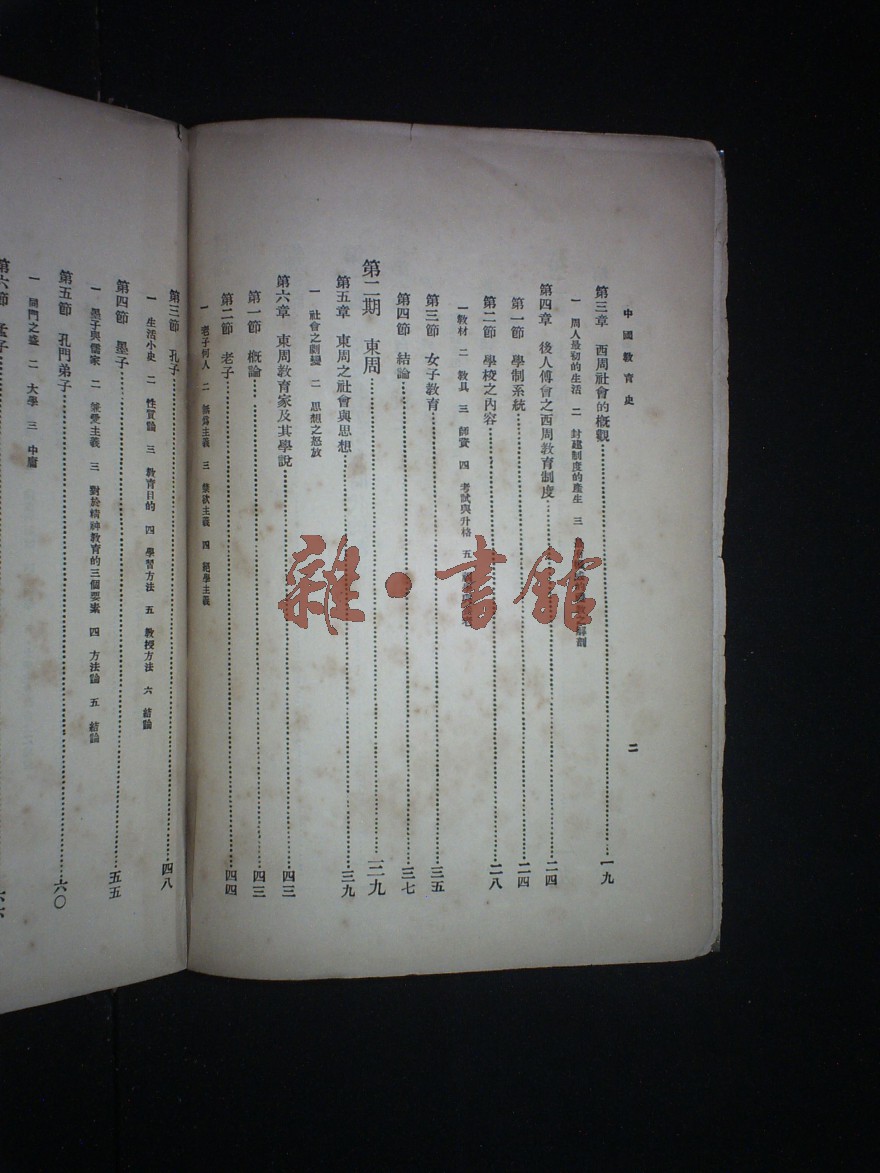 中國教育史
二
第三章 西周社會的槪觀 一九
一 周人最初的生活 二 封建制度的產生 三
第四章 後人傅會之西周教育制度 二四
第一節 學制系統 二四
第二節 學校之內容 二八
一 教材 二 教具 三 師資 四 考試與升格 五
第三節 女子教育 三五
第四節 結論 三七
第二期 東周 三九
第五章 東周之社會與思想 三九
一 社會之劇變 二 思想之怒放
第六章 東周教育家及其學說 四三
第一節 槪論 四三
第二節 老子 四四
一 老子何人 二 無爲主義 三 禁欲主義 四 絕學主義
第三節 孔子 四八
一 生活小史 二 性質論 三 教育目的 四 學習方法 五 教授方法 六 結論
第四節 墨子 五五
一 墨子與儒家 二 兼愛主義 三 對於精神教育的三個要素 四 方法論 五 結論
第五節 孔門弟子 六〇
一 開門之盛 二 大學 三 中庸
第六節 孟子
雜·書館